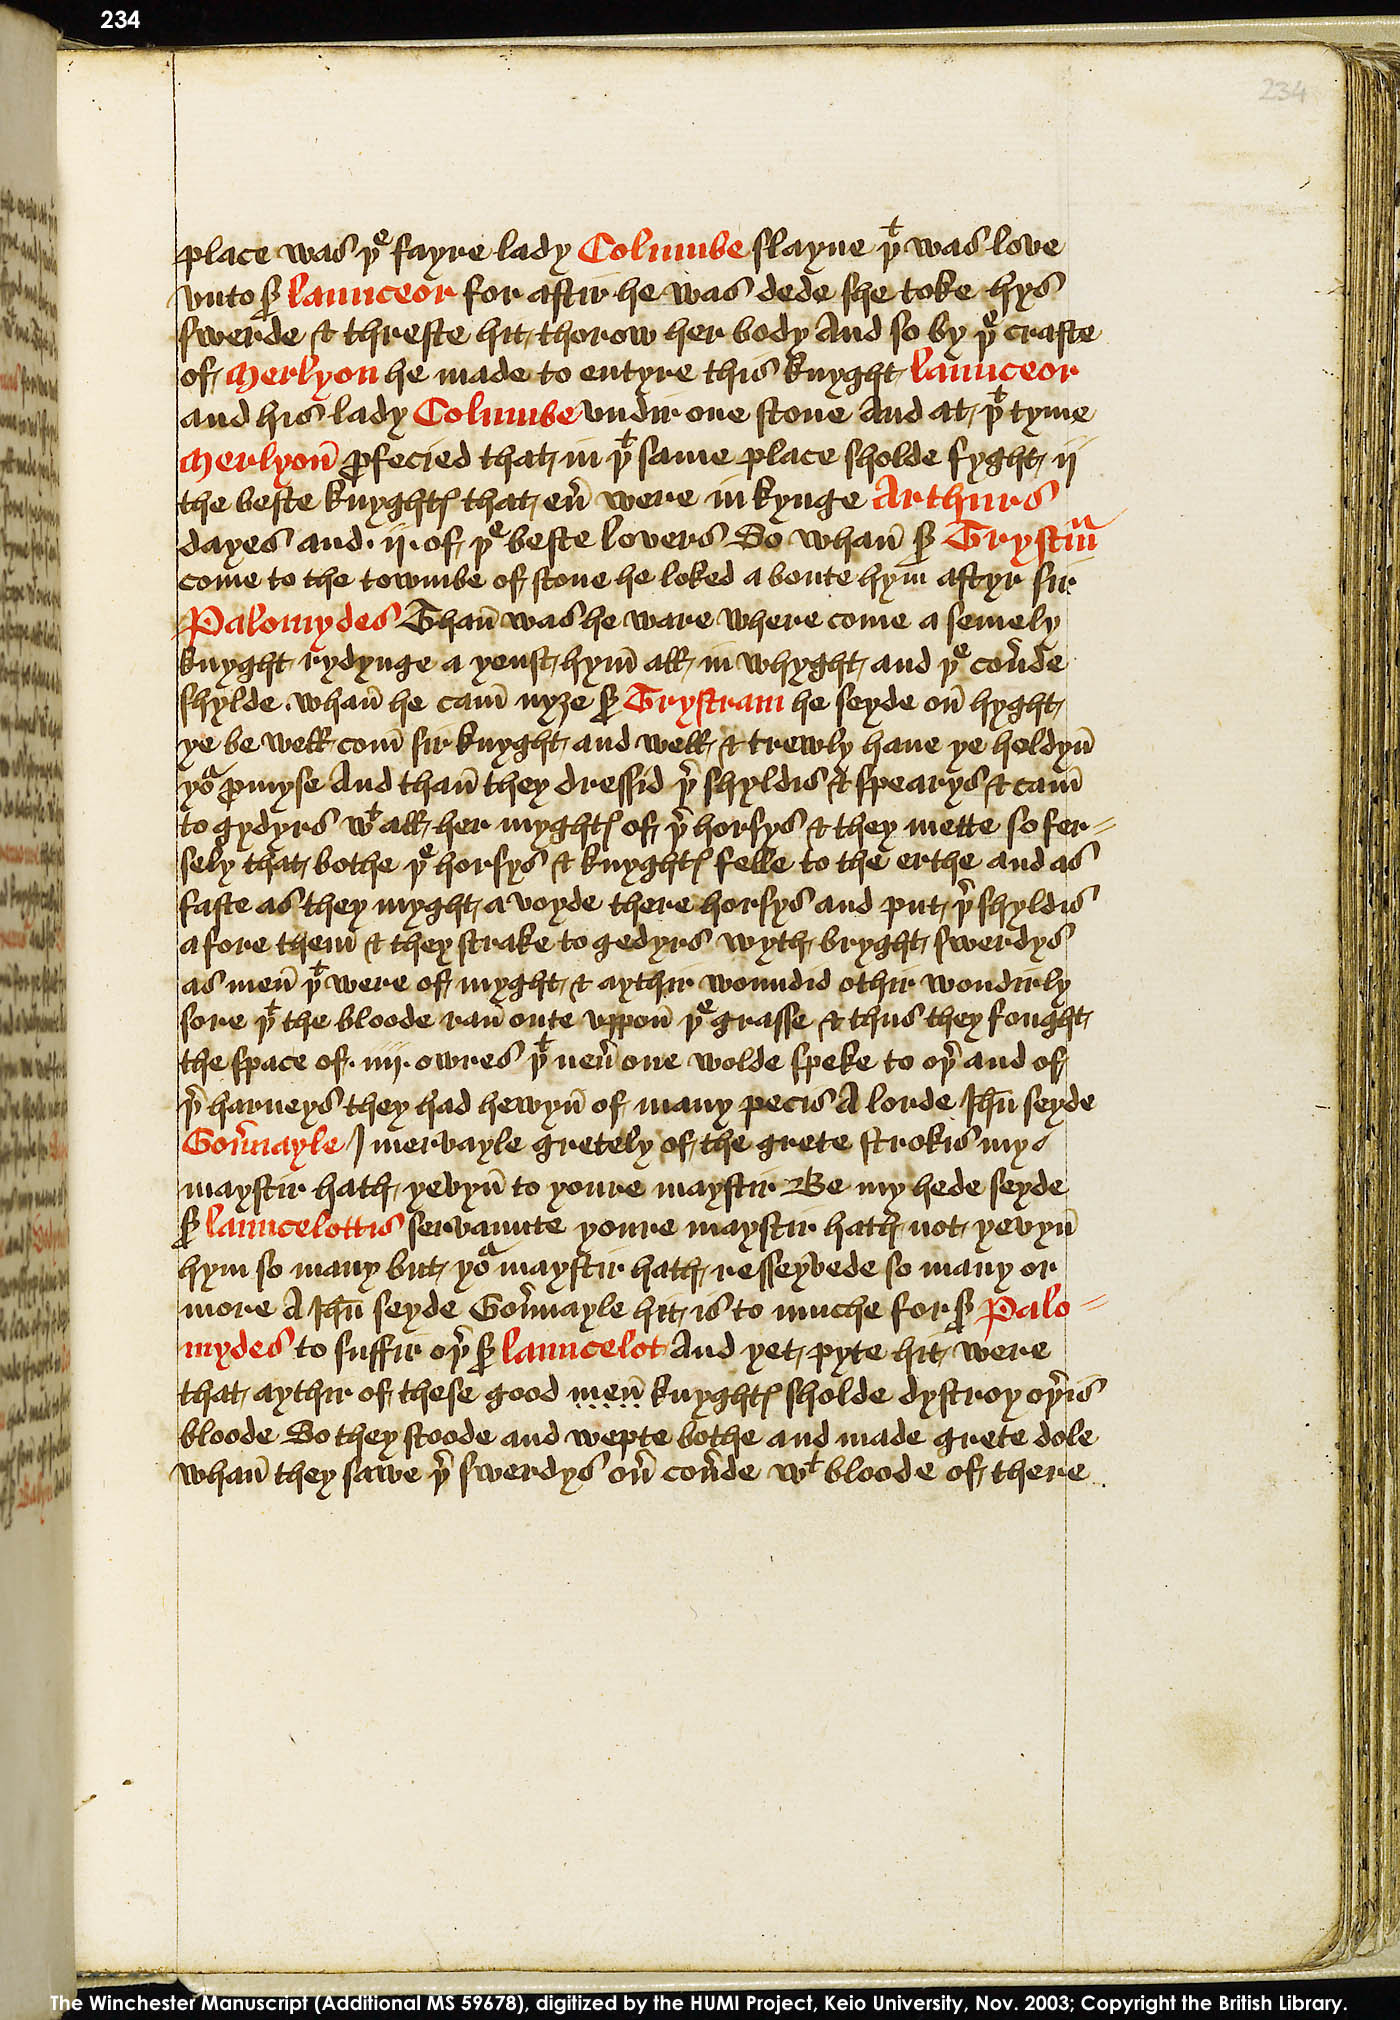 234
234
place was þͤ fayre lady Columbe slayne þᵗ was love
vnto ẜ Launceor for aftir he was dede she toke hys
swerde & threste hit thorow her body And so by þͤ crafte
of Merlyon he made to entyre this knyght Launceor
and his lady Columbe vndir one stone And at þᵗ tyme
Merlyon̄ ꝓfecied that in þᵗ same place sholde fyght ij
the beste knyghtꝭ that eu̾ were in kynge Arthurs
dayes and · ij · of þͤ beste lovers So whan̄ ẜ Trystrͣm
come to the towmbe of stone he loked a boute hym aftyr sir
Palomydes Than̄ was he ware where come a semely
knyght rydynge a yenst hym̄ all in whyght and þͤ cou̾de
shylde whan̄ he cam̄ nyȝe ẜ Trystram he seyde on̄ hyght
ye be well com̄ sir knyght and well & trewly haue ye holdyn̄
yoͬ ꝓmyse And than̄ they dressid þ̾ shyldis & spearys & cam̄
to gydyrs wᵗ all her myghtꝭ of þ̾ horsys & they mette so fer=
sely that bothe þͤ horsys & knyghtꝭ felle to the erthe and as
faste as they myght a voyde there horsys and put þ̾ shyldis
a fore them̄ & they strake to gedyrs wyth bryght swerdys
as men̄ þᵗ were of myght & aythir woundid othir wondirly
sore þᵗ the bloode ran̄ oute vppon̄ þͤ grasse & thus they fought
the space of · iiij · owres þᵗ neu̾ one wolde speke to oþ̾ and of
þ̾ harneys they had hewyn̄ of many pecis A lorde Jhū seyde
Gou̾nayle J mervayle gretely of the grete strokis my
maystir hath yevyn̄ to youre maystir Be my hede seyde
ẜ Launcelottis servaunte youre maystir hath not yevyn̄
hym so many but yoͬ maystir hath resseyvede so many or
more A Jhū seyde Gou̾nayle hit is to muche for ẜ Palo=
mydes to suffir oþ̾ ẜ Launcelot And yet pyte hit were
that aythir of these good men̄ knyghtꝭ sholde dystroy oþ̾is
bloode So they stoode and wepte bothe and made grete dole
whan̄ they sawe þ̾ swerdys ou̾ cou̾de wᵗ bloode of there
The Winchester Manuscript (Additional MS 59678), digitized by the HUMI Project, Keio University, Nov. 2003; Copyright the British Library.